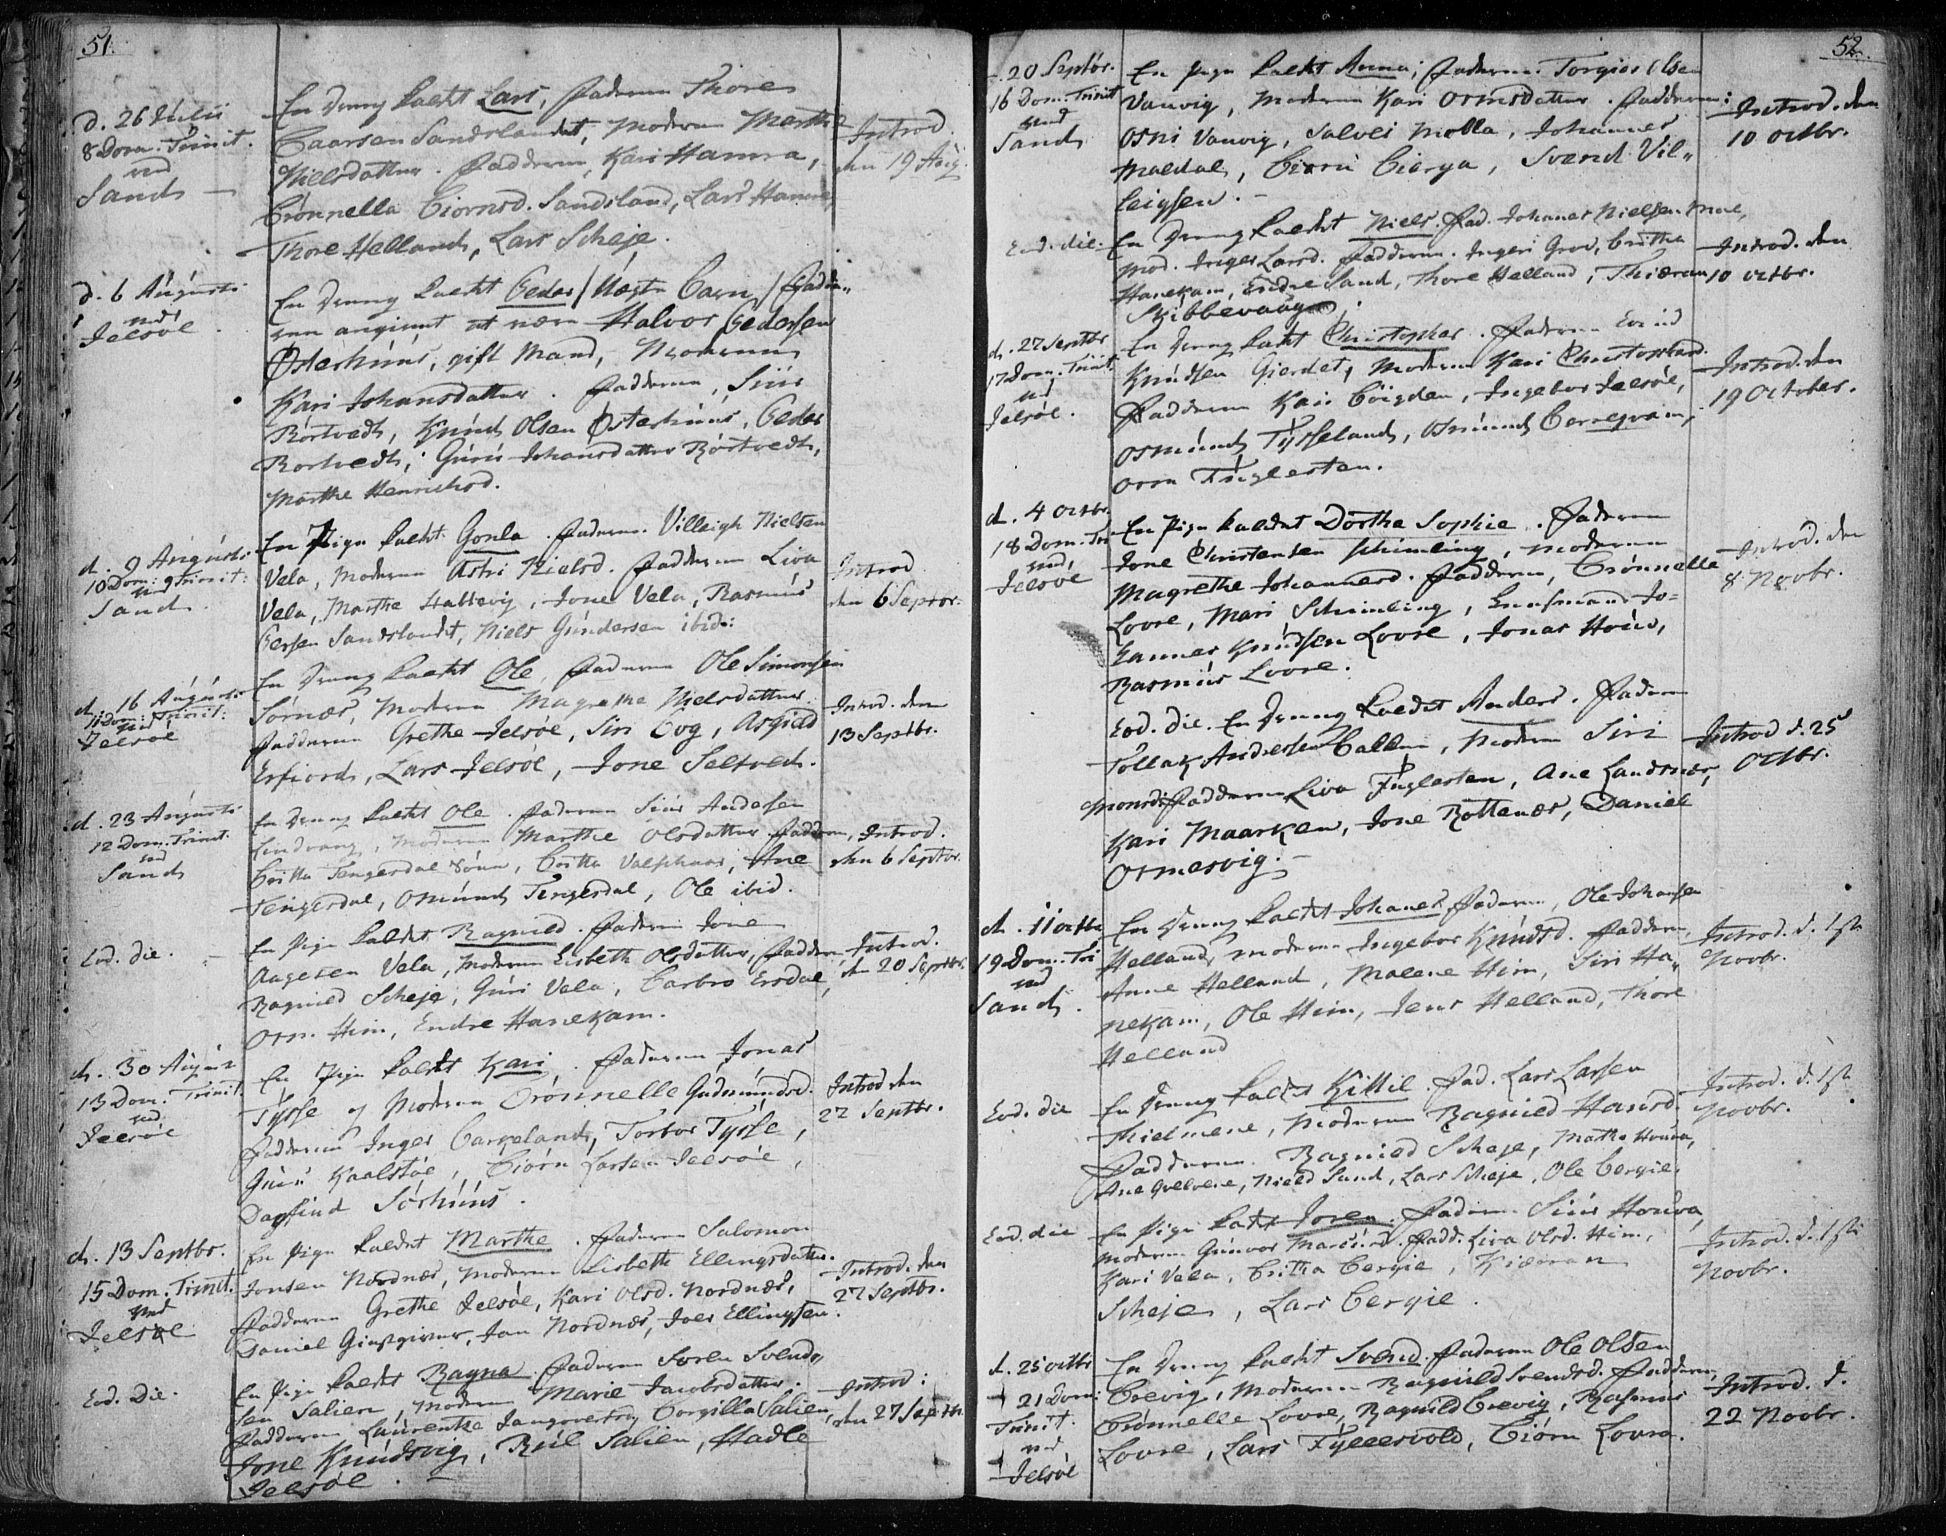 51.
d. 26 Julii
8 Dom: Trinit.
ved
Sand
En Dreng kaldt Lars, Faderen Thore
Sandslandet, Moderen Marthe
Nielsdatter. Fadderne, Kari Hamra,
Biornsd. Sandsland, Lars Hamra,
Thore Helland, Lars Scheje.
Introd.
den 19 Aug.
d. 6 Augusti
ved
Jelsöe
En Dreng kaldt Peder / Uægte Barn / Fade-
ren angivet at være Halvor Pedersen
Østerhuus, gift Mand, Moderen
Kari Johansdatter. Fadderne, Siur
Rörtvedt, Knud Olsen Østerhuus, Peder
Rortvedt, Guru Johansdatter Rörtvedt,
Marthe Henrichsd.
d. 9 Augusti
10 Dom: Trinit:
ved
Sand
En Pige kaldt Gonla. Faderen Villeigh Nielsen
Vela, Moderen Astri Nielsd. Fadderne Liva
Vela, Marthe Hattevig, Jone Vela, Rasmus
Persen Sandslandet, Niels Gundersen ibid:
Introd.
den 6 Septbr.
d. 16 Augusti
11 Dom: Trinit:
ved
Jelsöe
En Dreng kaldt Ole, Faderen Ole Simonsen
Sörnæs, Moderen Magrethe Nielsdatter
Fadderne Grethe Jelsöe, Siri Bog, Asgield
Erfiord, Lars Jelsöe, Jone Seltvedt.
Introd. den
13 Septbr.
d. 23 Augusti
12 Dom. Trinit.
ved
Sand
En Dreng kaldt Ole. Faderen Siur Andersen
Lindvang, Moderen Marthe Olsdatter. Faddern,
Britta Tengesdal, Britta Valskaar, Ane
Tengesdal, Osmund Tengesdal, Ole ibid.
Introd.
den 6 Septbr.
Eod. die.
En Pige kaldet Ragnild. Faderen Jone
Aagesen Vela, Moderen Lisbeth Olsdatter, Fadderne,
Ragnild Scheje, Guri Vela, Barbro Ersdal,
Orm Him, Endre Hanekam.
Introd.
den 20 Septbr.
d. 30 August
13 Dom. Trinit.
ved
Jelsöe
En Pige kaldt Kari. Faderen Jonas
Tysse og Moderen Brönnelle Gudmundsd.
Fadderne Inger Barkeland, Torbor Tysse,
Guru Kaalstöe, Biörn Larsen Jelsöe,
Dagfind Sörhuus.
Introd den
27 Septbr.
d. 13 Septbr.
15 Dom. Trinit.
ved
Jelsöe
En Pige kaldet Marthe. Faderen Salomon
Jonsen Nordnæs, Moderen Lisbeth Ellingsdatter.
Fadderne Grethe Jelsöe, Kari Olsd. Nordnæs,
Daniel Giæstgiver, Jan Nordnæs, Joes Ellingsen.
Introd. den
27 Septbr.
Eod. die.
En Pige kaldet Ragna. Faderen Soren Svend-
sen Salien, Moderen Marie Jacobsdatter.
Fadderne Laurentze Borgilla Salien,
Jone Knudsvig, Salien, Hadle
Jelsöe.
Introd:
den 27 Septbr.
52.
20 Septbr.
16 Dom. Trinit
ved
Sand
En Pige kaldt Anna; Faderen Torgier Olsen
Vanvig, Moderen Kari Osmsdatter. Fadderne:
Osni Vanvig, Salvei Molla, Johannes
Maldal, Svend Vil-
leigsen.
Introd. den
10 Octbr.
Eod. die.
En Dreng kaldt Niels. Fad. Johanes Nielsen
Mod. Inger Larsd. Fadderne. Ingeri Grov, Britha
Hanekam, Endre Sand, Thore Helland,
Skibbevaag
Introd. den
10 Octbr.
d. 27 Septbr
17 Dom. Trinit
ved
Jelsöe.
En Dreng kaldt Christopher. Faderen Evind
Knudsen Gierdet, Moderen Kari Christophersd.
Fadderne Kari Böigden, Ingebor Jelsöe,
Osmund Tysseland, Osmund Berregrain,
Orm Fuglesten.
Introd. den
19 October.
d. 4 Octbr.
18 Dom. Tr.
ved,
Jelsöe
En Pige kaldet Dorthe Sophie. Faderen
Jone Christensen Schimling, Moderen
Magrethe Johannesd. Fadderne, Brönnelle
Lovre, Mari Schimling, Jo-
hannes Knudsen Lovre, Jonas Houu,
Rasmus Lovre.
Introd. den
8 Novbr.
Eod. die. En Dreng kaldet Anders. Faderen
Tollak Andersen, Moderen Siri
Monsd: Fadderne Liva Fuglesten, Ane Landsnæs,
Kari Maarken, Jone Bottenæs, Daniel
Ormesvig.
Introd d. 25
Octbr.
d. 11 octbr
19 Dom. Tri
ved
Sand.
En Dreng kaldt Johanes, Faderen, Ole Johansen
Helland, Moderen Ingebor Knudsd. Fadderne,
Anne Helland, Malene Him, Siri Ha-
nekam, Ole Him, Jens Helland, Thore
Helland
Introd. d. 1ste
Novbr.
Eod. die
En Dreng kaldt Kittil. Fad. Lars Larsen
Moderen Ragnild Hansd.
Fadderne. Ragnild Scheje, Marthe
Ane, Nield Sand, Lars Scheje, Ole Bergie.
Introd. d. 1ste
Novbr.
Eod. die
En Pige kaldt Joren. Faderen Siur Houva,
Moderen Gunvor. Fadd. Liva Olsd. Him,
Kari Vela, Britha Bergie,
Scheje, Lars Bergie.
Introd. d. 1ste
Novbr.
d. 25 octbr
21 Dom:
Trinit.
ved,
Jelsöe
En Dreng kaldt Svend. Faderen Ole Olsen
Brevig, Moderen Ragnild Svendsd. Fadderne,
Brønnelle Lovre, Ragnild Brevig, Rasmus
Lovre, Lars Fyllesvold, Biörn Lovra.
Introd. d.
22 Novbr.